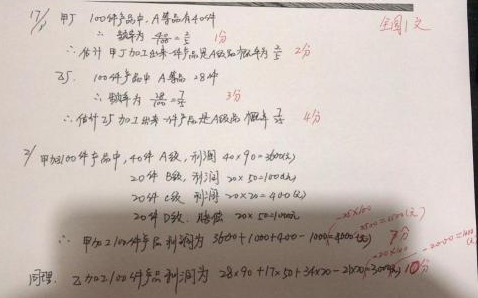 17/ 甲厂 100件产品中，A等品有40件 全国1文
∴ 频率为 40/100 = 2/5 1分
∴ 估计甲厂加工出来一件产品是A级品概率为 2/5 2分
乙厂. 100件产品中 A等品 28件
∴ 频率为 28/100 = 7/25 3分
∴ 估计乙厂加工出来一件产品是A级品概率 4分
2/ 甲加工100件产品中，40件 A级，利润 40×90=3600(元)
20件 B级，利润 20×50=1000元
20件 C级 利润 20×20=400(元)
20件 D级 赔偿 20×50=1000元
∴ 甲加工100件产品利润为 3600+1000+400-1000 7分
同理. 乙加工100件产品利润为 28×90+17×50+34×20- 10分